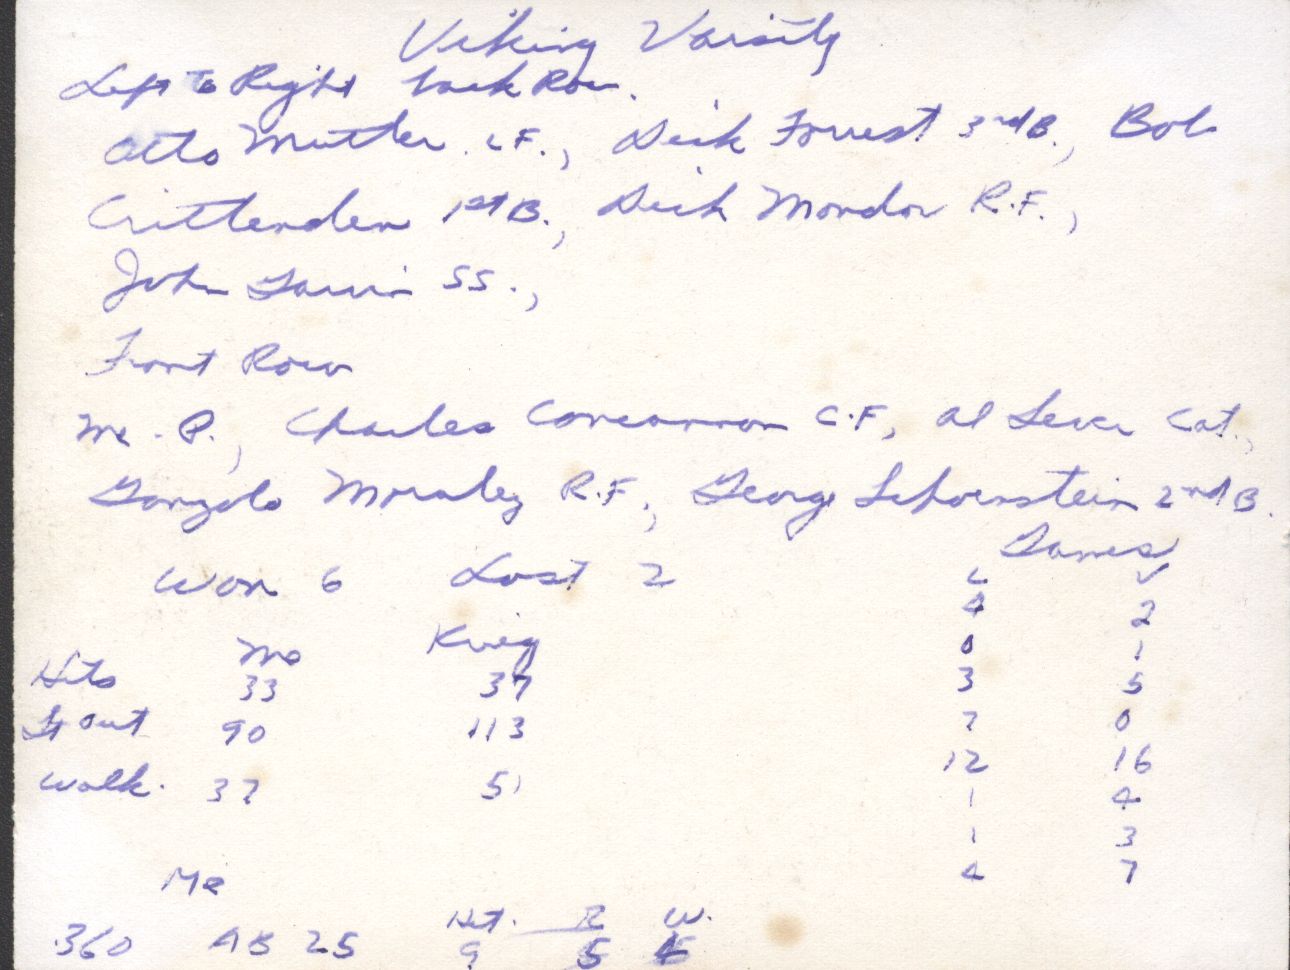 Viking Varsity
Left to Right back Row.
Otto Mutter. L F., Dick Forrest 3rd B., Bob
Crittenden 1st B., Dick Mondor R.F.,
John SS.,
Front Row
Me - P., Charles Concannon C.F, Al Lever Cat.,
Gonzolo Moraley R.F., George Schoenstein 2nd B.
Games
Won 6 Lost 2 L V
4 2
0 1
Me Kreig
Hits 33 37 3 5
St out 90 113 7 0
Walk. 37 51 12 16
1 4
1 3
Me 4 7
Hit. R W.
.360 AB 25 9 5